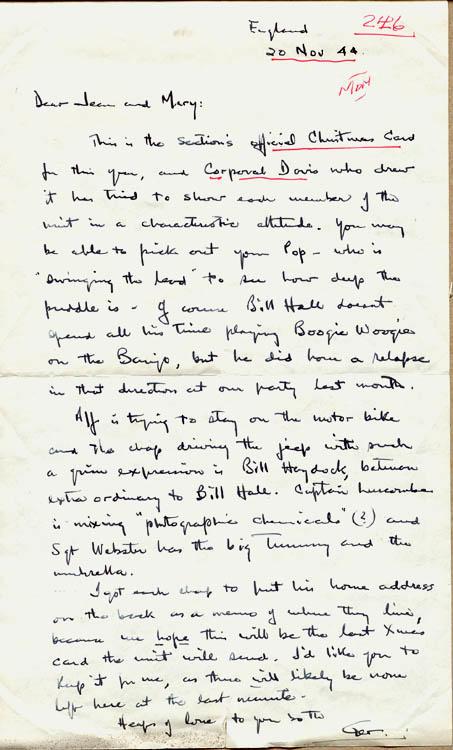 England
246
20 Nov 44.
Dear Jean and Mary:
This is the section's official Christmas Card
for this year, and Corporal Davis who drew
it has tried to show each member of the
unit in a characteristic attitude. You may
be able to pick out your Pop - who is
"swinging the lead" to see how deep the
puddle is - Of course Bill Hall doesn't
spend all his time playing Boogie Woogie
on the Banjo, but he did have a relapse
in that direction at our party last month.
Alf is trying to stay on the motor bike
and the chap driving the jeep with such
a grim expression is Bill Haydock, batman
extra ordinary to Bill Hall. Captain Luscombe
is mixing "photographic chemicals" (?) and
Sgt Webster has the big Tummy and the
umbrella.
I got each chap to put his home address
on the back as a memo of where they live,
because we hope this will be the last Xmas
card the unit will send. I'd like you to
keep it for me, as there will likely be none
left here at the last minute.
Heaps of love to you both